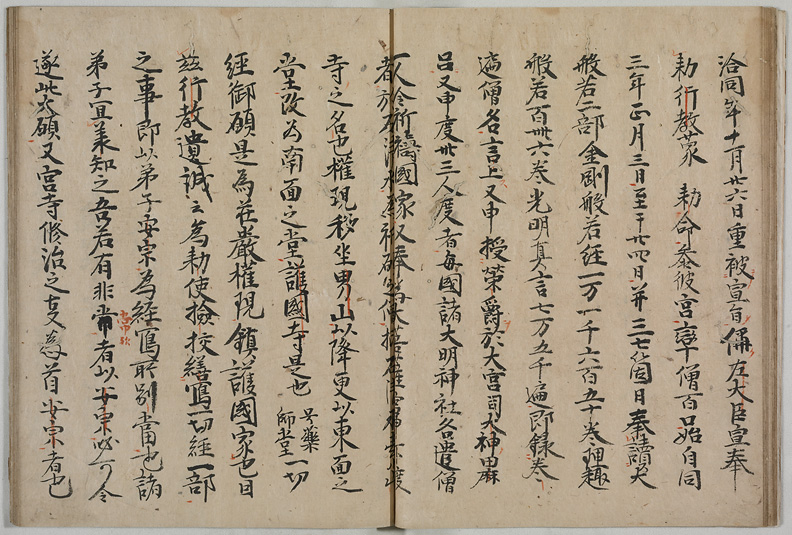 洽同年十一月廿六日重被宣旨偁左大臣宣奉
勅行教蒙 勅命参彼宮率僧百口始自同
三年正月三日至于廿四日并三七箇日奉讀大
般若二部金剛般若經一万一千六百五十卷理趣
般若百卅六卷光明真言七万五千遍即錄卷
遍僧名言上又申授榮爵於大宮司大神田麻
呂又申度卅三人度者每國諸大明神社各遣僧
一人令祈禱國家
寺之名也權現移坐男山以降更以東面之
堂改為南面之堂護國寺是也 号藥師堂 一切
經御願是為莊嚴權現鎮護國家也因
茲行教遺誡云為勅使撿挍繕寫一切經一部
之事即以弟子安宗為經寫所別當也諸
弟子宜兼知之吾若有非常者以安宗必可令
遂此大願又宮寺修治之 首安宗者也